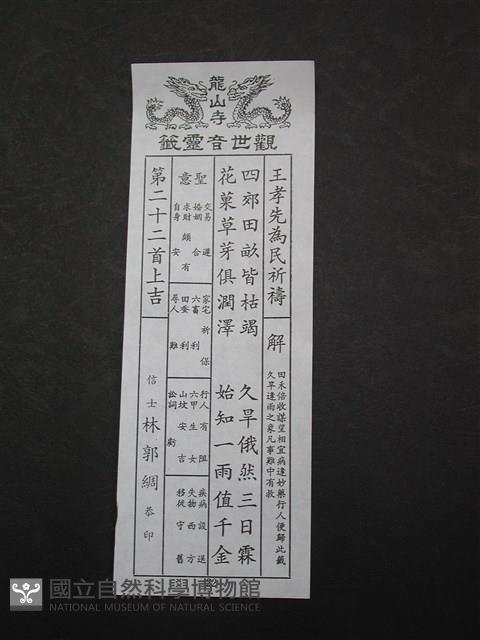 龍山寺
觀世音靈籤
王孝先為民祈禱
解
田禾倍收謀望相宜病逢妙藥行人便歸此籤
久旱逢雨之象凡事難中有救
四郊田畝皆枯竭 久旱俄然三日霖
花菓草芽俱潤澤 始知一雨值千金
聖意
交易 遲
婚姻 合
求財 頗有
自身 安
家宅 祈保
六畜 利
田蚕 利
尋人 難
行人 有阻
六甲 生女
山坟 安吉
訟詞 虧
疾病 設送
失物 西方
移徙 守舊
第二十二首上吉
信士 林郭綢 恭印
國立自然科學博物館
NATIONAL MUSEUM OF NATURAL SCIENCE